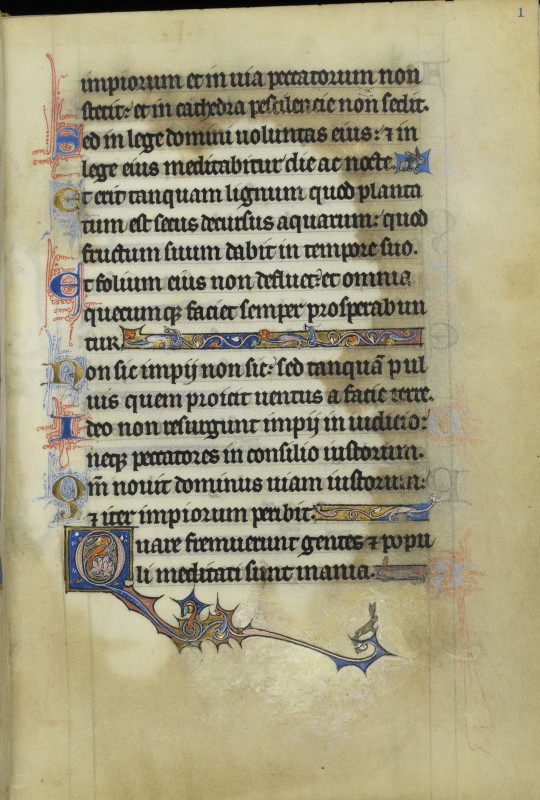 1
impiorum et in uia peccatorum non
stetit: et in cathedra pestilencie non sedit.
Sed in lege domini uoluntas eius: ⁊ in
lege eius meditabitur die ac nocte.
Et erit tanquam lignum quod planta
tum est secus decursus aquarum: quod
fructum suum dabit in tempore suo.
Et folium eius non defluet: et omnia
quecumqꝫ faciet semper prosperabun
tur.
Non sic impij non sic: sed tanquā pul
uis quem proicit uentus a facie terre.
Ideo non resurgunt impij in iudicio:
neqꝫ peccatores in consilio iustorum.
Qm̄ nouit dominus uiam iustorum:
⁊ iter impiorum peribit.
Quare fremuerunt gentes ⁊ popu
li meditati sunt inania.